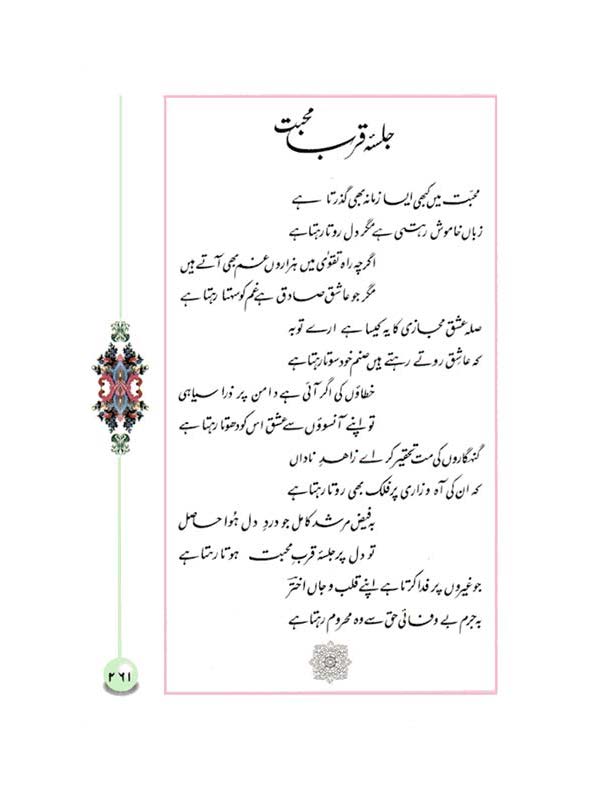 جلسۂ قربِ محبت
محبّت میں کبھی ایسا زمانہ بھی گذرتا ہے
زباں خاموش رہتی ہے مگر دل روتا رہتا ہے
اگرچہ راہ تقوٰی میں ہزاروں غم بھی آتے ہیں
مگر جو عاشق صادق ہے غم کو سہتا رہتا ہے
صلہ عشق مجازی کا یہ کیسا ہے ارے توبہ
کہ عاشق روتے رہتے ہیں صنم خود سوتا رہتا ہے
خطاؤں کی اگر آئی ہے دامن پر ذرا سیاہی
تو اپنے آنسوؤں سے عشق اس کو دھوتا رہتا ہے
گنہگاروں کی مت تحقیر کر اے زاھدِ ناداں
کہ ان کی آہ و زاری پر فلک بھی روتا رہتا ہے
بہ فیض مرشد کامل جو دردِ دل ہُوا حاصل
تو دل پر جلسۂ قربِ محبت ہوتا رہتا ہے
جو غیروں پر فدا کرتا ہے اپنے قلب و جاں اخترؔ
بہ جرم بے وفائی حق سے وہ محروم رہتا ہے
۲۶۱